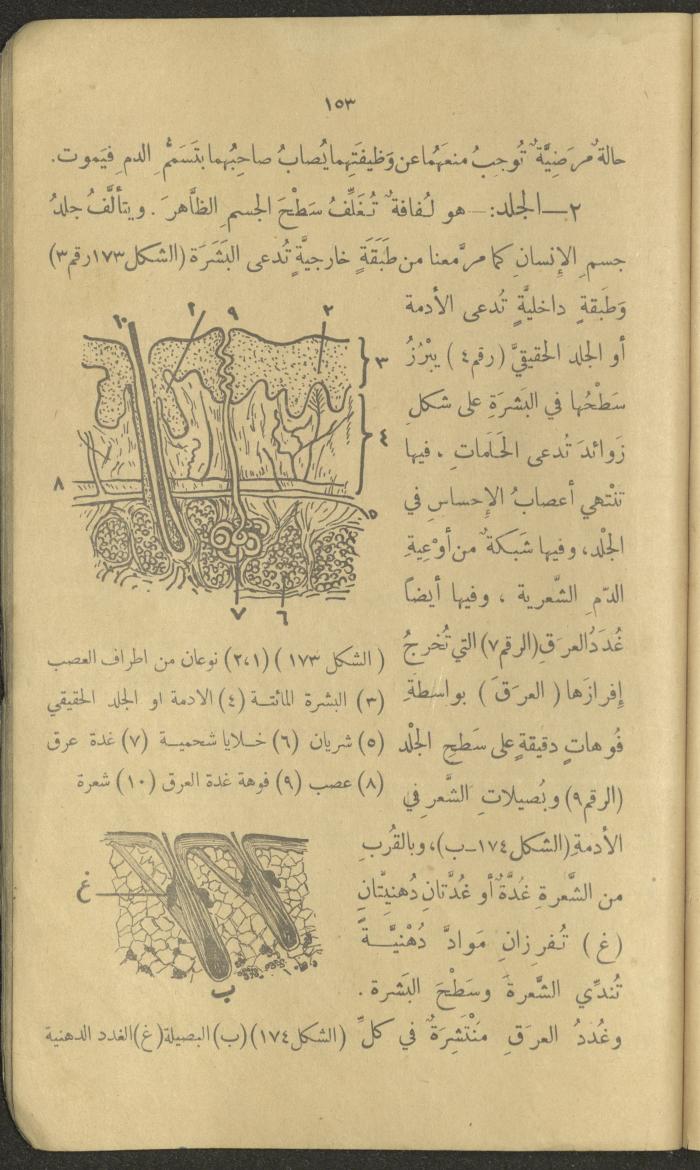 ١٥٣
حالةٌ مرَضِيَّةٌ تُوجبُ منعَهُما عن وَظيفَتِهِما يُصابُ صاحِبُهما بتَسَمُّمِ الدم ِ فيَموت.
٢ــ الجلد: ــ هو لُفافةٌ تُغَلِّفُ سَطْحَ الجسم ِ الظَّاهرَ . ويتألَّفُ جلدُ
جسم ِ الإِنسانِ كما مرَّ معنا من طَبَقَةٍ خارجيَّةٍ تُدعى البَشَرَة (الشكل ١٧٣ رقم ٣)
وَطَبقةٍ داخليَّةٍ تُدعى الأدمة
أو الجلد الحقيقيَّ ( رقم ٤ ) يبْرُزُ
سَطْحُها في البَشرَةِ على شكل ِ
زَوائدَ تُدعى الحَلَمات ِ ، فيها
تنْتهي أعصابُ الإِحساس ِ في
الجلْد ، وفيها شبَكةٌ من أوْعِيةِ
الدّم ِ الشَّعرية ، وفيها أيضاً
غُدَدُ العرَقِ (الرقم ٧) التي تُخرجُ
إِفرازَها ( العرَقَ ) بواسطةِ
فُوهاتٍ دقيقةٍ على سَطحِ الجلْد
(الرقم ٩) وبُصيلاتِ الشَّعرِ في
الأدمةِ (الشكل ١٧٤ـب) ، وبالقُربِ
من الشَّعرةِ غدَّةٌ أو غدَّتانِ دُهنيَّتانِ
(غ) تُفرِزانِ مَوادَّ دُهْنيَّـةً
تُندِّي الشَّعرةَ وسَطْحَ البَشرة .
وغُددُ العرَقِ مَنْتَشِرَةٌ في كلِّ
١٠
١
٩
٢
٣
٤
٨
٥
٧
٦
( الشكل ١٧٣ ) (٢،١) نوعان من اطراف العصب
(٣) البشرة المائتـة (٤) الادمة او الجلد الحقيقي
(٥) شريان (٦) خـلايا شحميـة (٧) غدة عرق
(٨) عصب (٩) فوهة غدة العرق (١٠) شعرة
غ
ب
(الشكل ١٧٤) (ب) البصيلة (غ) الغدد الدهنية